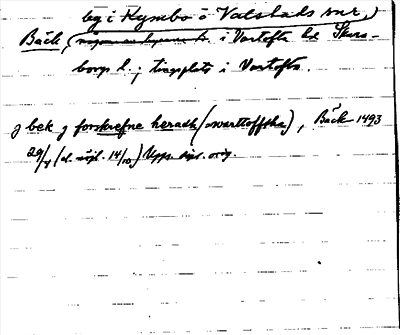 leg i Kymbo o Valstads snr,)
Bäck, i Vartofta hd Skara-
borgs l.; tingsplats i Vartofta.
j bek j forskrefne heradt (swarttofftha), Bäck 1493
29/4 (el. möjl. 14/10) Upps. dipl. orig.